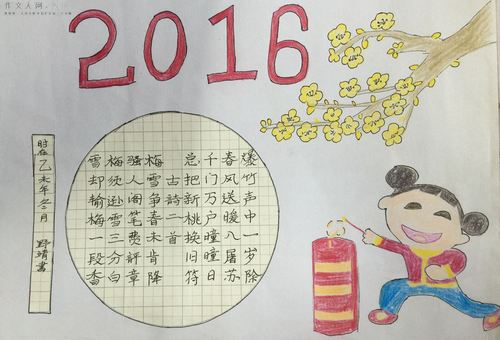 作文人网
2016
爆竹声中一岁除
春风送暖入屠苏
千门万户瞳瞳日
总把新桃换旧符
古詩二首
梅雪争春未肯降
骚人阁笔费評章
梅须逊雪三分白
雪却输梅一段香
时在乙未年冬二月 野靖書